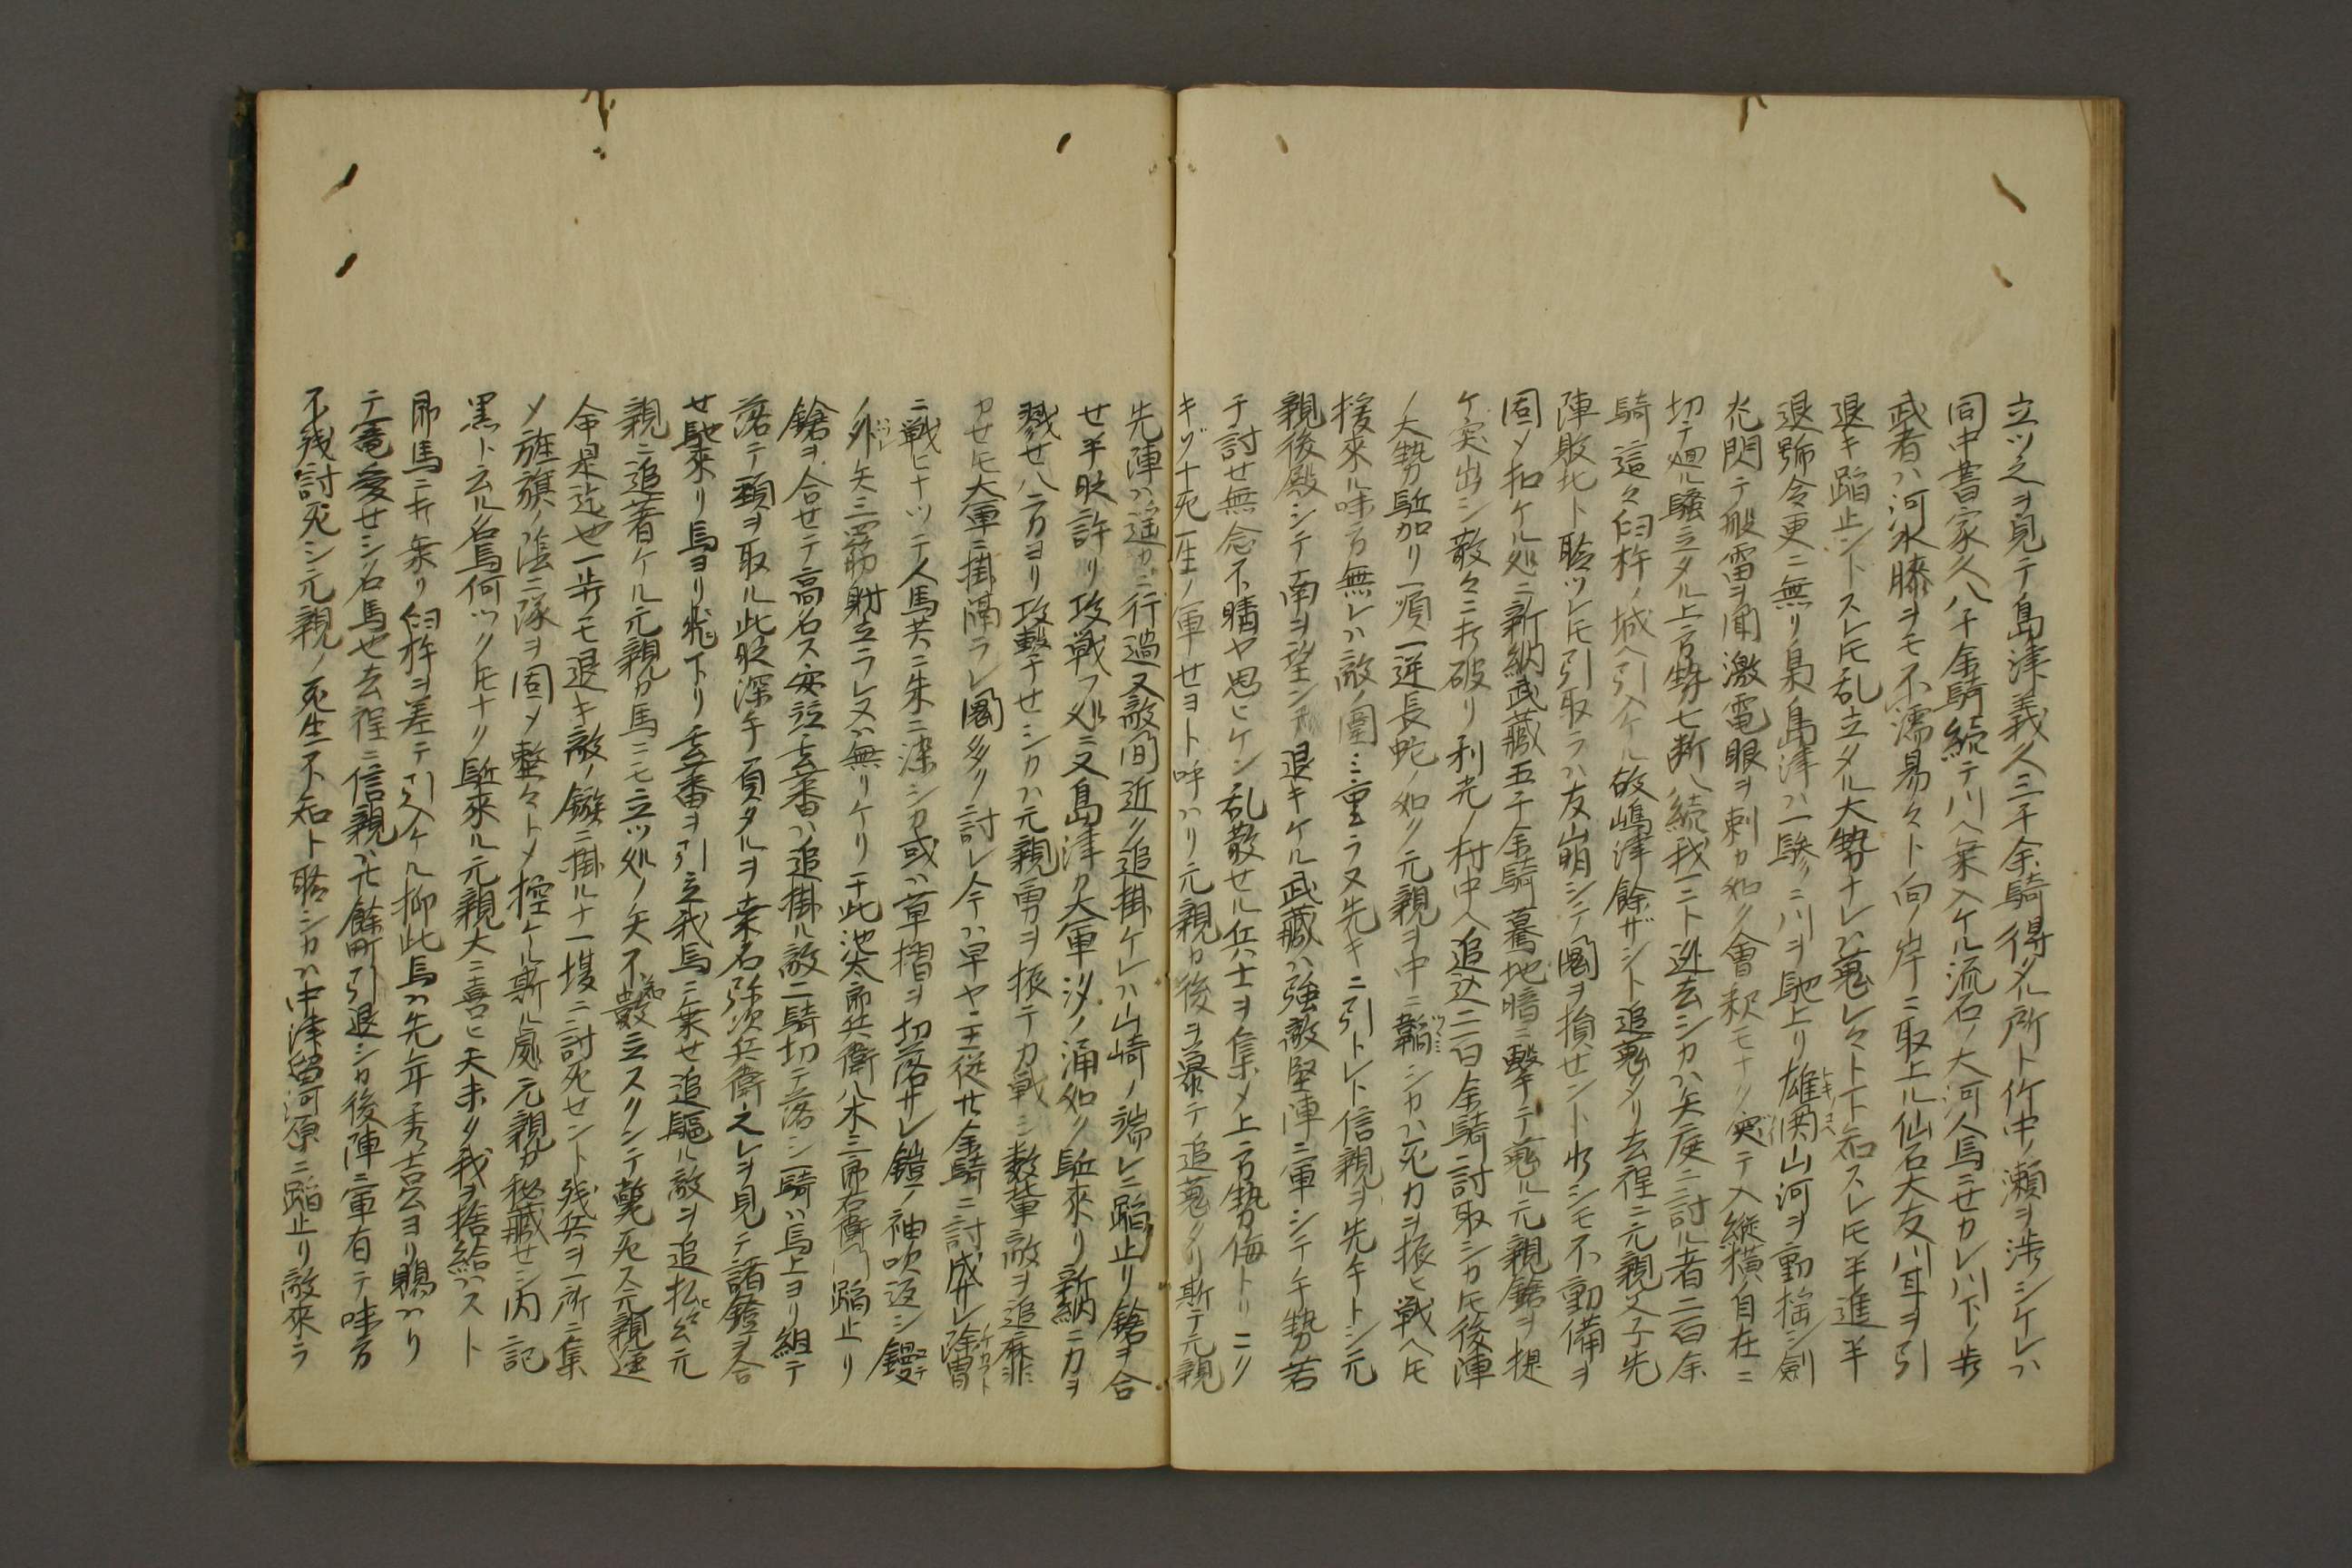 立ツ之ヲ見テ島津義久三千余騎得タル所ト竹中ノ瀬ヲ渉シケレハ
同中書家久八千余騎続テ川ヘ乗入ケル流石ノ大河人馬ニセカレ川下ノ歩
武者ハ河水膝ヲモ不濡易々ト向ノ岸ニ取上ル仙石大友川耳ヲ引
退キ蹈止ントスレ𪜈乱立タル大勢ナレハ蒐レ々ト下知スレ𪜈半進半
退号令更ニ無リ島津ハ一驂ニ川ヲ馳上リ雄関山河ヲ動揺シ剣
光閃テ般雷ヲ聞激電眼ヲ刺カ如ク會釈モナク突テ入縦横自在ニ
切テ廻ル騒立タル上方勢七断八続我一ニト迯去シカハ矢庭ニ討ル者二百余
騎這々臼杵ノ城ヘ引入ケル敵嶋津餘ザシト追蒐タリ去程ニ元親父子先
陣敗北ト聆ツレ𪜈引取ラハ友崩シテ圏ヲ損セント少シモ不動備ヲ
固メ扣ケル処ニ新納武蔵五千余騎驀地暗ニ撃テ蒐ル元親鎗ヲ提
ケ突出シ散々ニ打破リ利光ノ村中ヘ追込二百余騎討取シカ𪜈後陣
ノ大勢駈加リ一順一逆長蛇ノ如ク元親ヲ中ニ韜シカハ死力ヲ振ヒ戦ヘ𪜈
援來ル味方無レハ敵ノ圍ミ三重ラヌ先キニ引トレト信親ヲ先キトシ元
親後殿シテ南ヲ望ンテ退キケル武蔵ハ強敵堅陣ニ軍シテ手勢若
干討セ無念不晴ヤ思ヒケン乱散セル兵士ヲ集メ上方勢侮トリニク
キゾ十死一生ノ軍セヨト呼ハリ元親カ後ヲ慕テ追蒐タリ斯テ元親
先陣ハ遥カニ行過又敵間近ク追掛ケレハ山崎ノ端レニ蹈止リ鎗ヲ合
セ半時許リ攻戦フ処ニ又島津カ大軍汐ノ涌如ク駈來リ新納ニ力ヲ
戮セ八方ヨリ攻撃テセシカハ元親勇ヲ振テ力戦シ数輩敵ヲ追麻非
カセ𪜈大軍ニ掛隔ラレ圏多ク討レ今ハ早ヤ主従廿余騎ニ討成サレ除冑
ニ戦ヒナツテ人馬共ニ朱ニ染シカ或ハ草摺ヲ切落サレ鎧ノ袖吹返シ鏝
ノ外矢三四筋射立ラレヌハ無リケリ于此池太郎兵衛八木三郎右衛門蹈止リ
鎗ヲ合セテ高名ス安並玄蕃ハ追掛ル敵二騎切テ落シ一騎ハ馬上ヨリ組テ
落テ頸ヲ取ル此時深手負タルヲ桑名弥次兵衛之レヲ見テ諸鐙ヲ合
セ馳來リ馬ヨリ飛下リ玄蕃ヲ引立我馬ニ乗セ追駆ル敵ヲ追払ヒ々元
親ニ追著ケル元親カ馬ニモ立ツ処ノ矢不知数立スクンテ斃死ス元親運
命是迄也一歩モ退キ敵ノ鏃ニ掛ルナ一場ニ討死セント残兵ヲ一所ニ集
メ旌旗ノ陰ニ隊ヲ固メ整々トメ控ケル斯ル処元親カ秘蔵セシ内記
黒ト云ル名馬何ツク𪜈ナク駈來ル元親大ニ喜ヒ天未タ我ヲ捨給ハスト
即馬ニ打乗リ臼杵ヲ差テ引入ケル抑此馬ハ先年秀吉公ヨリ賜ハリ
テ寵愛セシ名馬也去程ニ信親ハ廿餘町引退シカ後陣ニ軍有テ味方
不残討死シ元親ノ死生不知ト聆シカハ中津留河原ニ蹈止リ敵來ラ